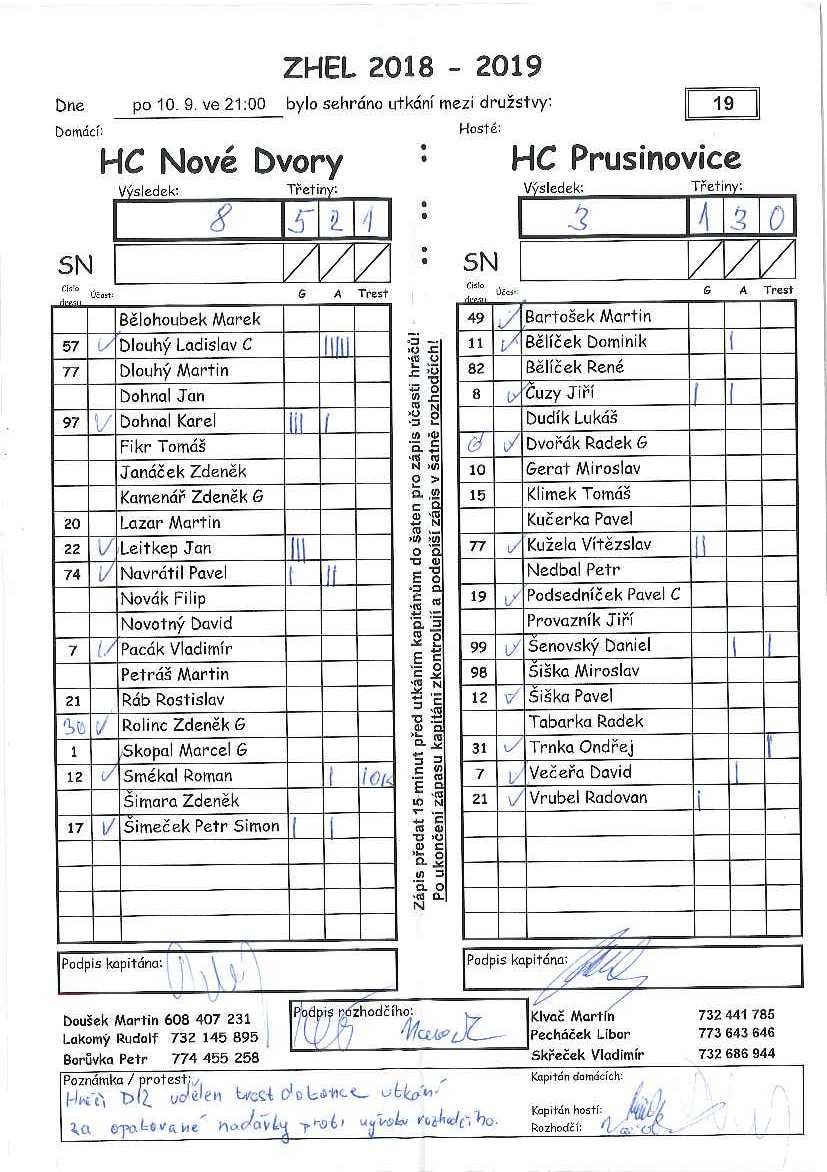 ZHEL 2018 - 2019
Dne po 10. 9. ve 21:00 bylo sehráno utkání mezi družstvy: 19
Domácí: Hosté:
HC Nové Dvory : HC Prusinovice
Výsledek: Třetiny: Výsledek: Třetiny:
8 5 2 1 : 3 1 3 0
SN : SN
Cislo dresu Účast: G A Trest Cislo dresu Účast: G A Trest
Bělohoubek Marek 49 Bartošek Martin
57 Dlouhý Ladislav C IIIII 11 Bělíček Dominik I
77 Dlouhý Martin 82 Bělíček René
Dohnal Jan 8 Čuzy Jiří I I
97 Dohnal Karel III I Dudík Lukáš
Fikr Tomáš Dvořák Radek G
Janáček Zdeněk 10 Gerat Miroslav
Kamenář Zdeněk G 15 Klimek Tomáš
20 Lazar Martin Kučerka Pavel
22 Leitkep Jan III 77 Kužela Vítězslav II
74 Navrátil Pavel I II Nedbal Petr
Novák Filip 19 Podsedníček Pavel C
Novotný David Provazník Jiří
7 Pacák Vladimír 99 Šenovský Daniel I I
Petráš Martin 98 Šiška Miroslav
21 Ráb Rostislav 12 Šiška Pavel
30 Rolinc Zdeněk G Tabarka Radek
1 Skopal Marcel G 31 Trnka Ondřej I
12 Smékal Roman I 7 Večeřa David I
Šimara Zdeněk 21 Vrubel Radovan I
17 Šimeček Petr Simon I I
Zápis předat 15 minut před utkáním kapitánům do šaten pro zápis účasti hráčů!
Po ukončení zápasu kapitáni zkontrolují a podepíší zápis v šatně rozhodčích!
Podpis kapitána: Podpis kapitána:
Podpis rozhodčího:
Doušek Martin 608 407 231 Klvač Martin 732 441 785
Lakomý Rudolf 732 145 895 Pecháček Libor 773 643 646
Borůvka Petr 774 455 258 Skřeček Vladimír 732 686 944
Poznámka / protest: Kapitán domácích:
udělen trest do konce utkání
za opakované nadávky proti výroku rozhodčího.
Kapitán hostí:
Rozhodčí: